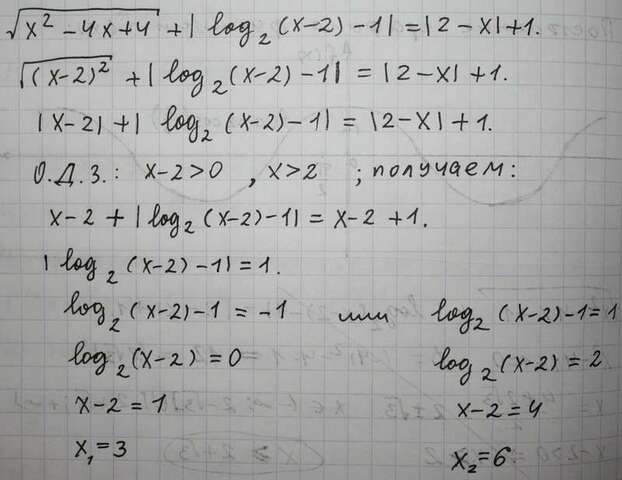 √(x² - 4x + 4) + | log₂ (x-2) - 1 | = |2 - x| + 1.
√((x-2)²) + | log₂ (x-2) - 1 | = |2 - x| + 1.
|x-2| + | log₂ (x-2) - 1 | = |2 - x| + 1.
О.Д.З.: x-2>0 , x>2 ; получаем:
x-2 + | log₂ (x-2) - 1 | = x-2 + 1.
| log₂ (x-2) - 1 | = 1.
log₂ (x-2) - 1 = -1 или log₂ (x-2) - 1 = 1
log₂ (x-2) = 0 log₂ (x-2) = 2
x-2 = 1 x-2 = 4
x₁ = 3 x₂ = 6